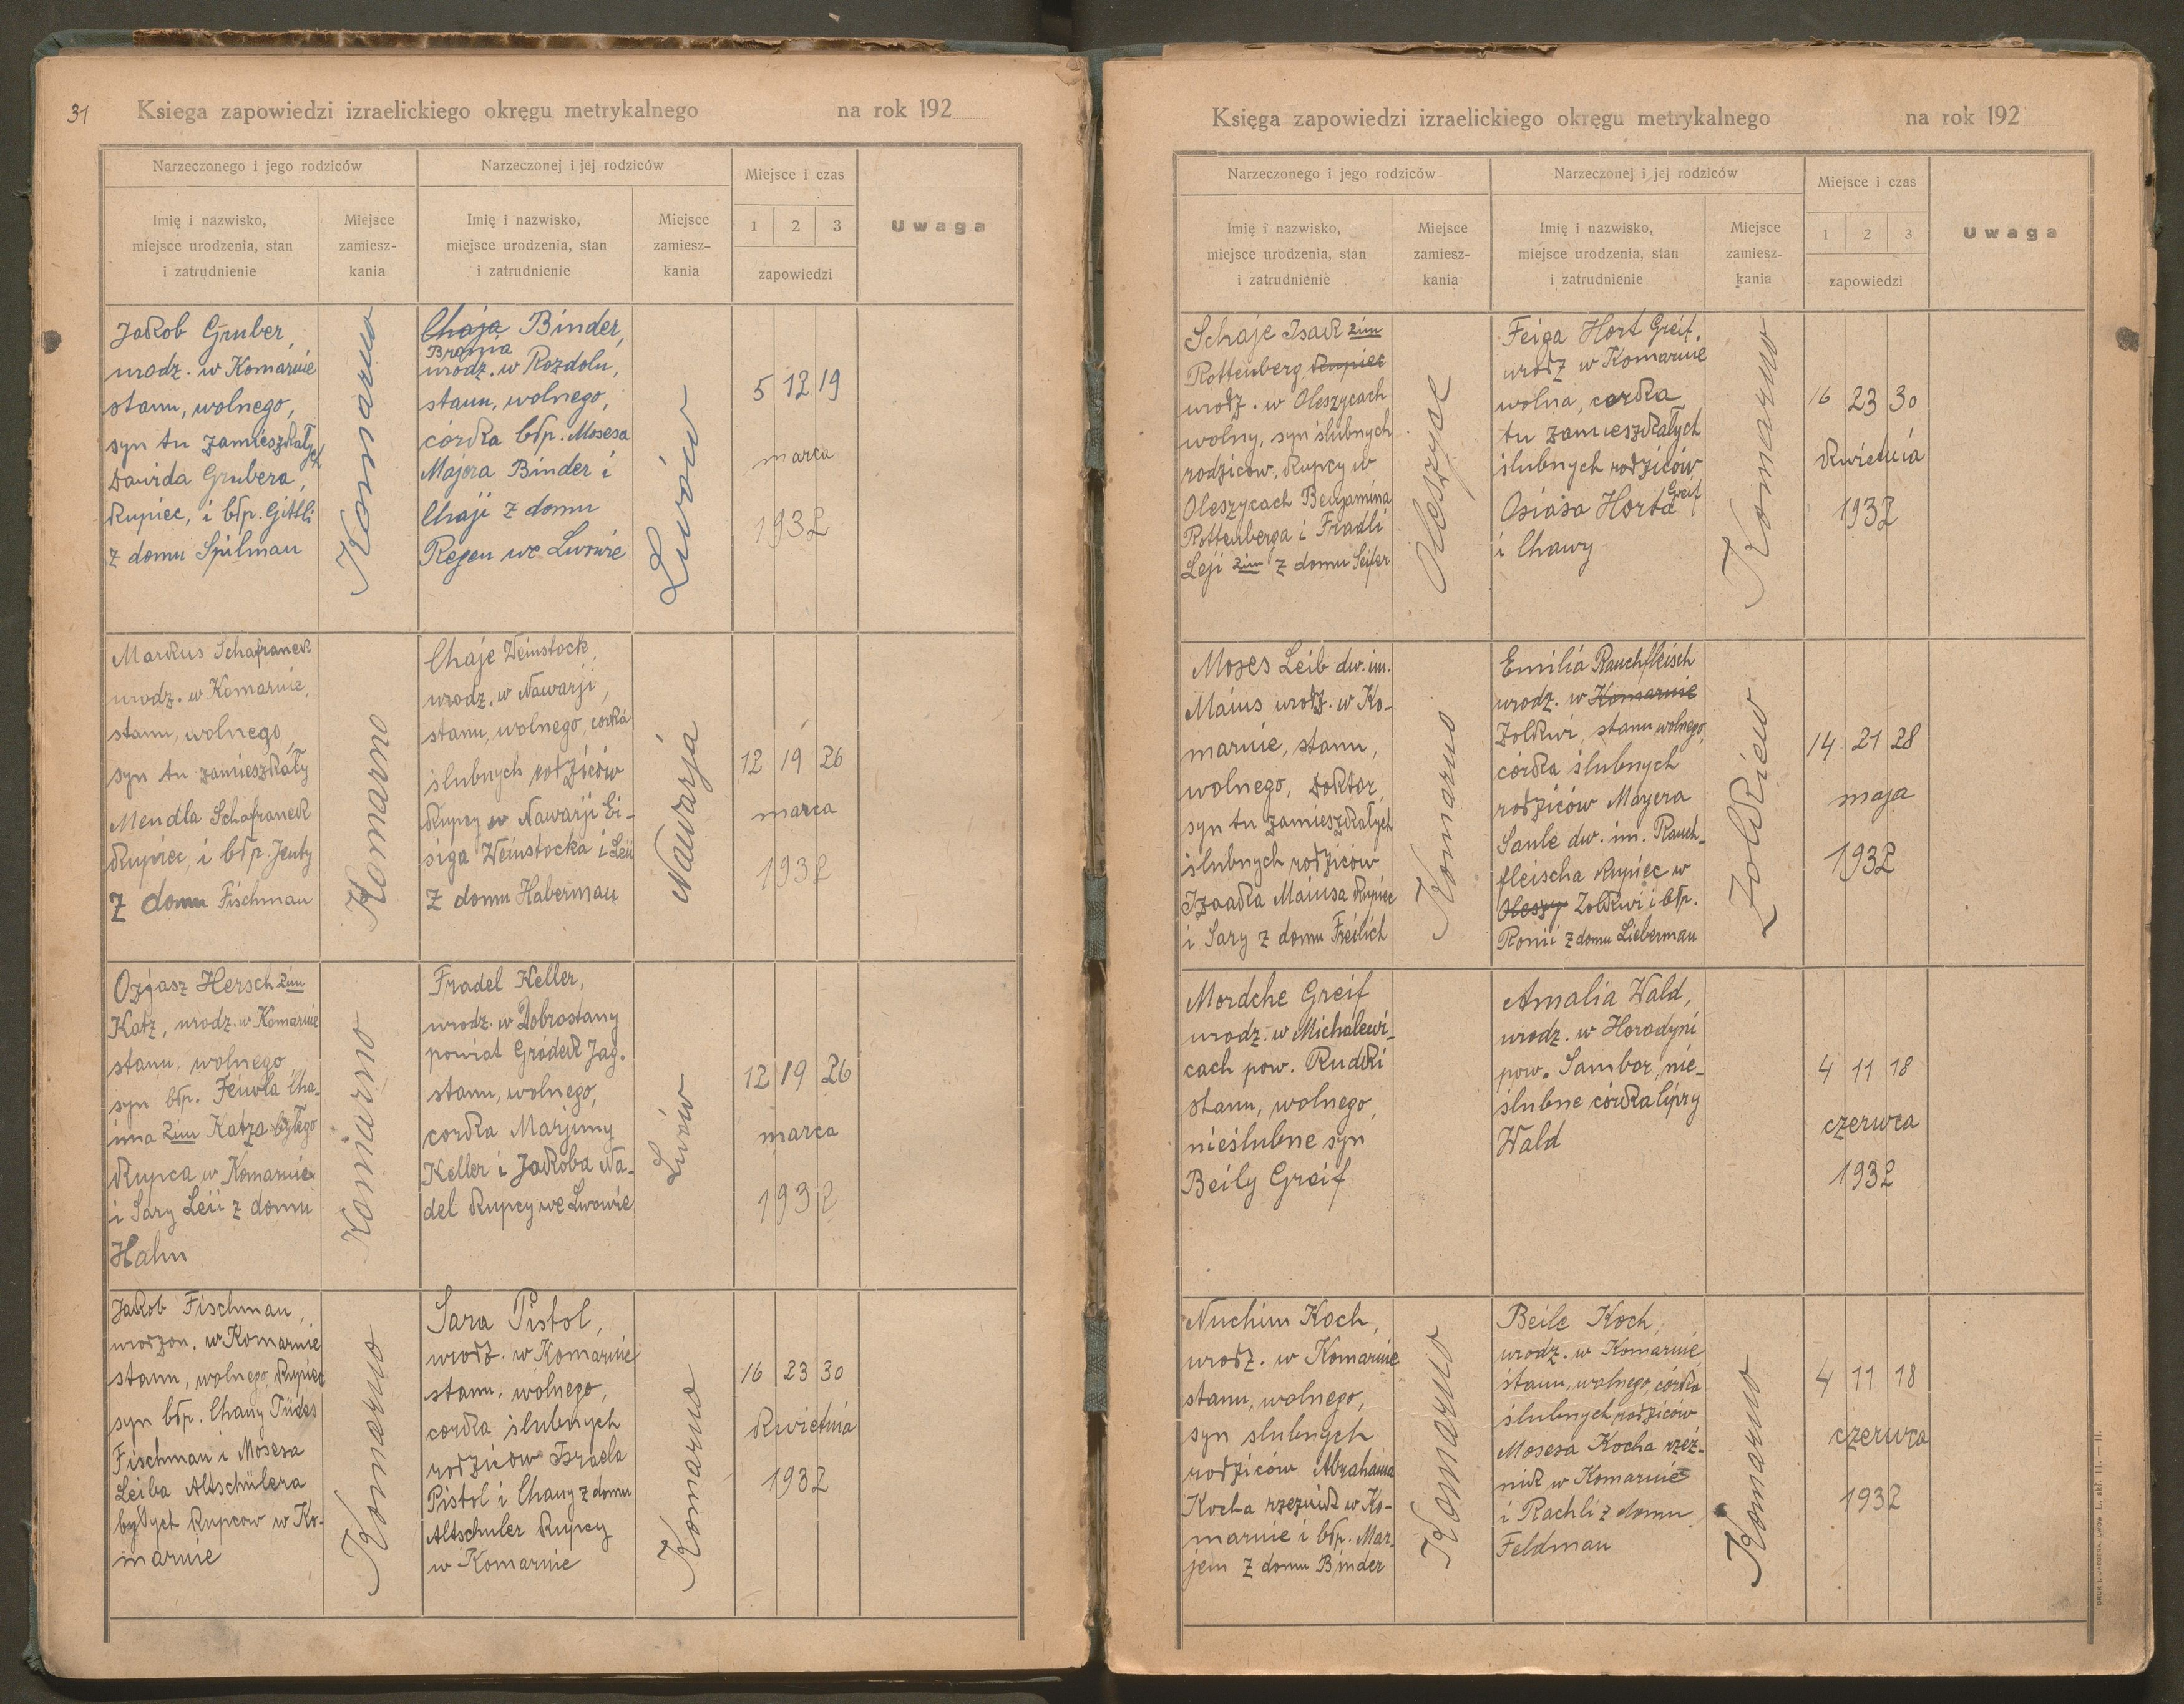 31
Księga zapowiedzi izraelickiego okręgu metrykalnego na rok 192
Narzeczonego i jego rodziców
Narzeczonej i jej rodziców
Miejsce i czas
Uwaga
Imię i nazwisko,
miejsce urodzenia, stan
i zatrudnienie
Miejsce
zamiesz-
kania
Imię i nazwisko,
miejsce urodzenia, stan
i zatrudnienie
Miejsce
zamiesz-
kania
1 2 3
zapowiedzi
Jakob Gruber,
urodz. w Komarnie
stanu, wolnego,
syn tu zamieszkałych
Dawida Grubera,
kupiec, i błp. Gittli
z domu Spilman
Komarno
Chaja Binder,
Brania
urodz. w Rozdolu,
stanu, wolnego,
córka błp. Mosesa
Majera Binder i
Chaji z domu
Regen we Lwowie
Lwów
5 12 19
marca
1932
Markus Schafranek
urodz. w Komarnie,
stanu, wolnego,
syn tu zamieszkały
Mendla Schafranek
kupiec, i błp. Jenty
z domu Fischman
Komarno
Chaje Weinstock,
urodz. w Nawarji,
stanu, wolnego, corka
ślubnych rodziców
kupcy w Nawarji Ei-
siga Weinstocka i Leii
z domu Haberman
Nawarja
12 19 26
marca
1932
Ozjasz Hersch 2im
Katz, urodz. w Komarnie
stanu, wolnego,
syn błp. Feiwla Cha-
ima 2im Katza byłego
kupca w Komarnie
i Sary Leii z domu
Hahn
Komarno
Fradel Keller,
urodz. w Dobrostany
powiat Gródek Jag.
stanu, wolnego,
corka Marjimy
Keller i Jakoba Na-
del kupcy we Lwowie
Lwów
12 19 26
marca
1932
Jakob Fischman,
urodzon. w Komarnie
stanu, wolnego, kupiec
syn błp. Chany
Fischman i Mosesa
Leiba Altschülera
byłych kupcow w Ko-
marnie
Komarno
Sara Pistol,
urodz. w Komarnie
stanu, wolnego,
corka ślubnych
rodzicow Israela
Pistol i Chany z domu
Altschuler kupcy
w Komarnie
Komarno
16 23 30
kwietnia
1932
Księga zapowiedzi izraelickiego okręgu metrykalnego na rok 192
Narzeczonego i jego rodziców
Narzeczonej i jej rodziców
Miejsce i czas
Uwaga
Imię i nazwisko,
miejsce urodzenia, stan
i zatrudnienie
Miejsce
zamiesz-
kania
Imię i nazwisko,
miejsce urodzenia, stan
i zatrudnienie
Miejsce
zamiesz-
kania
1 2 3
zapowiedzi
Schaje Isak 2im
Rottenberg, kupiec
urodz. w Oleszycach
wolny, syn ślubnych
rodzicow, kupcy w
Oleszycach Benjamina
Rottenberga i Fradli
Leji 2im z domu Seifer
Oleszyce
Feiga Hort Greif.
urodz w Komarnie
wolna, corka
tu zamieszkałych
ślubnych rodziców
Greif
Osiasa Horta
i Chawy
Komarno
16 23 30
kwietnia
1932
Moses Leib dw. im.
Maius urodz. w Ko-
marnie, stanu,
wolnego, Doktor,
syn tu zamieszkałych
ślubnych rodziców
Izaaka Maiusa kupiec
i Sary z domu Freilich
Komarno
Emilia Rauchfleisch
urodz. w Komarnie
Zolkwi, stanu wolnego,
córka ślubnych
rodziców Mayera
Saule dw. im. Rauch-
fleischa kupiec w
Oleszy Zolkwi i błp.
Ronii z domu Lieberman
Zolkiew
14 21 28
maja
1932
Mordche Greif
urodz. w Michalewi-
cach pow. Rudki
stanu, wolnego,
nieślubne syn
Beily Greif
Amalia Wald,
urodz. w Horodyni
pow. Sambor, nie-
ślubne córka Cipry
Wald
4 11 18
czerwca
1932
Nuchim Koch,
urodz. w Komarnie
stanu, wolnego,
syn slubnych
rodziców Abrahama
Kocha rzeznik w Ko-
marnie i błp. Mar-
jem z domu Binder
Komarno
Beile Koch,
urodz. w Komarnie
stanu, wolnego, córka
ślubnych rodziców
Mosesa Kocha rzeź-
nik w Komarnie
i Rachli z domu
Feldman
Komarno
4 11 18
czerwca
1932